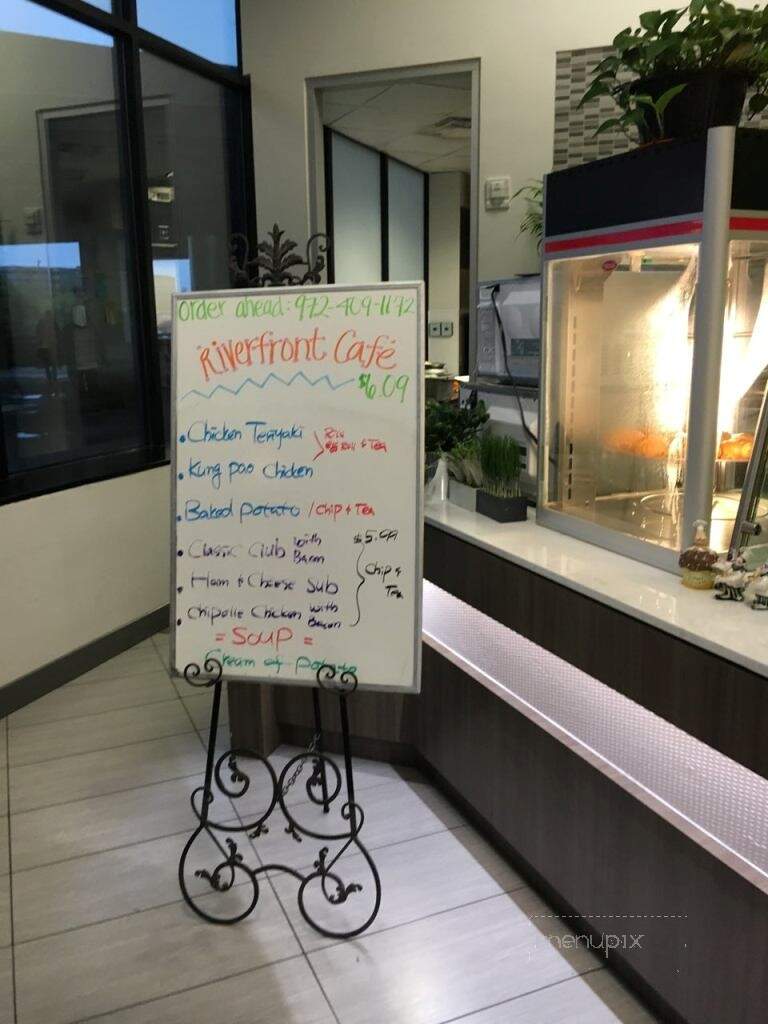 order ahead: 972-409-1172
Riverfront Café
$6.09
• Chicken Teriyaki
• Kung Pao Chicken
• Baked Potato / Chip + Tea
• Classic Club with Bacon
$5.99
• Ham & Cheese Sub
Chip & Tea
• Chipotle Chicken with Bacon
= Soup =
Cream of Potato
menupix